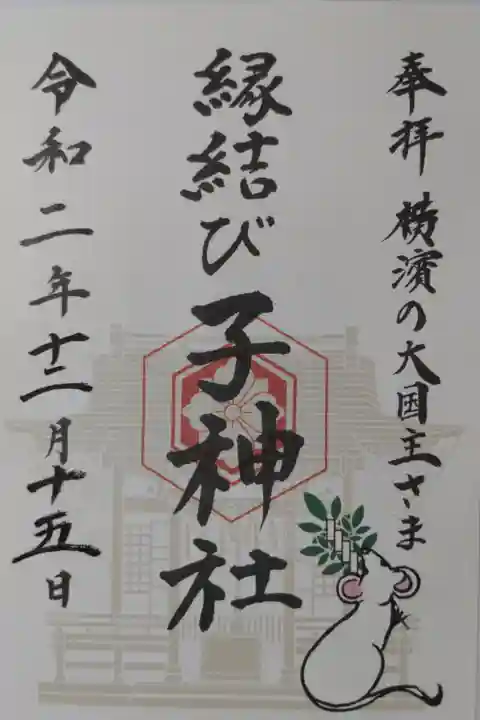 奉拝 横濱の大国主さま
縁結び 子神社
令和二年十二月十五日